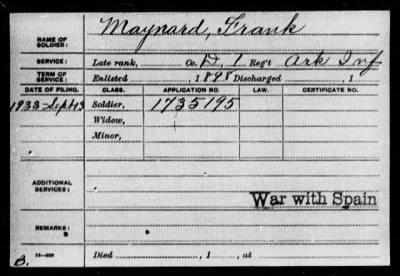 NAME OF SOLDIER: Maynard, Frank
SERVICE: Late rank, Co. D, 1 Reg't Ark Inf
TERM OF SERVICE: Enlisted , 1898 Discharged , 1
DATE OF FILING. CLASS. APPLICATION NO. LAW. CERTIFICATE NO.
1933-Sept 13 Soldier, 1735195
Widow,
Minor,
ADDITIONAL SERVICES:
War with Spain
REMARKS:
B. Died , 1 , at